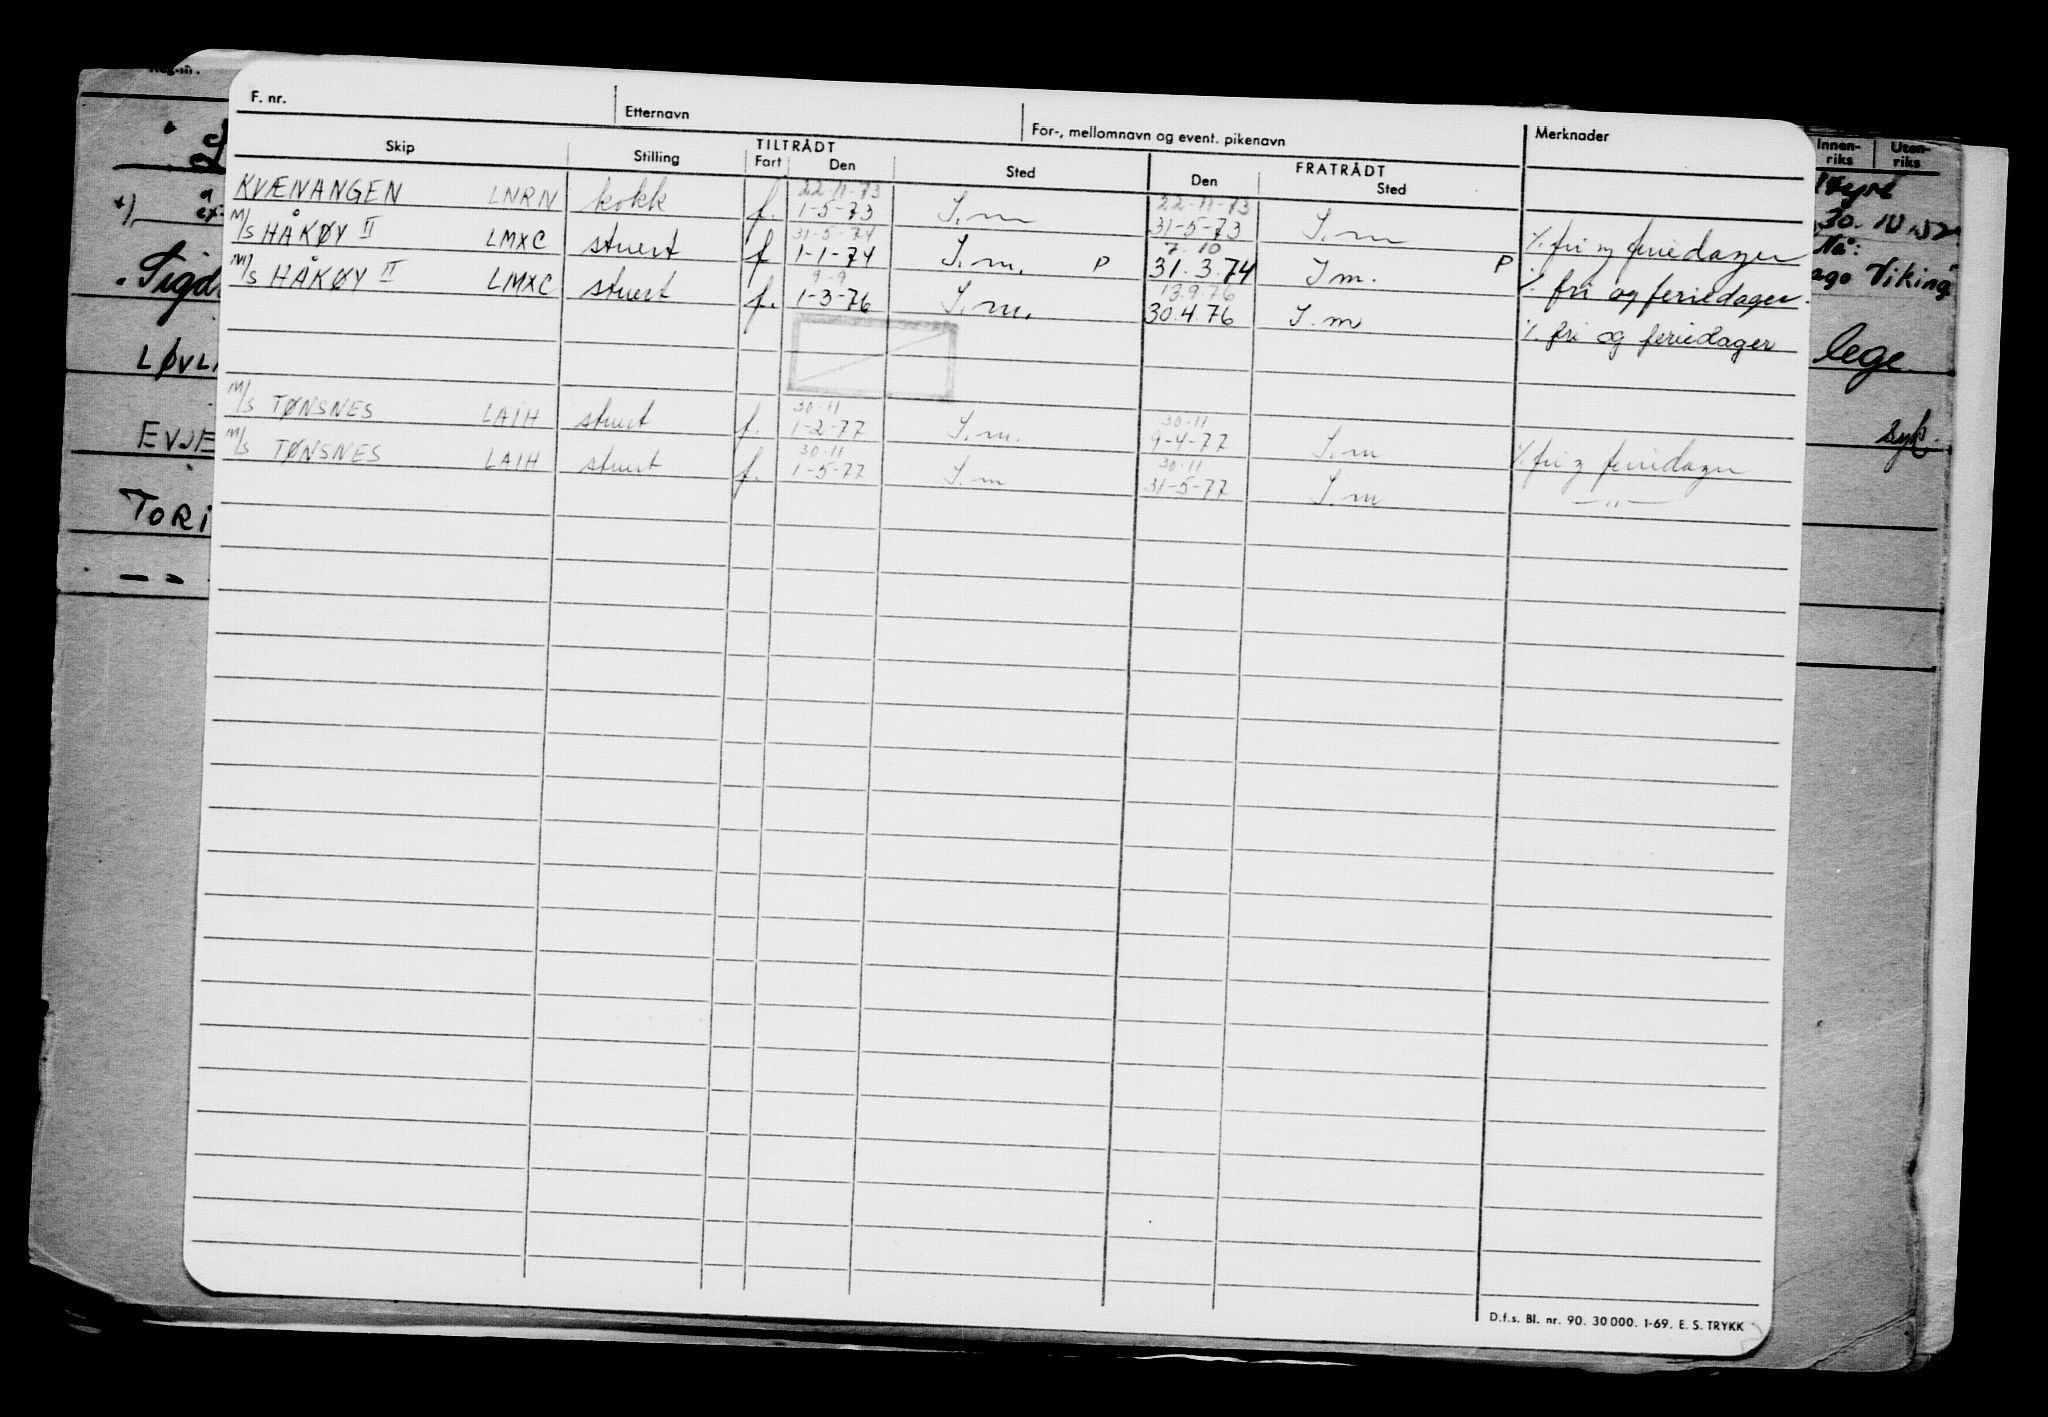 F. nr. Etternavn For-, mellomnavn og event. pikenavn Merknader
Skip Stilling TILTRÅDT Fart Den Sted FRATRÅDT Den Sted
22-11-73 22-11-73
KVÆNANGEN LNRN kokk f. 1-5-73 S.m 31-5-73 S.m ./. fri og feriedager
31-5-74 7.10
M/S HÅKØY II LMXC stuert f 1-1-74 S.m. P 31.3.74 S m. P ./. fri og feriedager.
9-9 13.9.76
M/S HÅKØY II LMXC stuert f. 1-3-76 S.m. 30.4.76 S.m ./. fri og feriedager
30-11 30-11
M/S TØNSNES LAIH stuert f. 1-2-77 S.m. 9-4-77 S.m ./. fri og feriedager
30-11 30-11
M/S TØNSNES LAIH stuert f. 1-5-77 S.m 31-5-77 S.m —"—
D.f.s. Bl. nr. 90. 30 000. 1-69. E. S. TRYKK
Innen-riks Uten-riks
30.10.52
Nå:
ago Viking"
lege
syk.
LØVL
EVJE
TORI